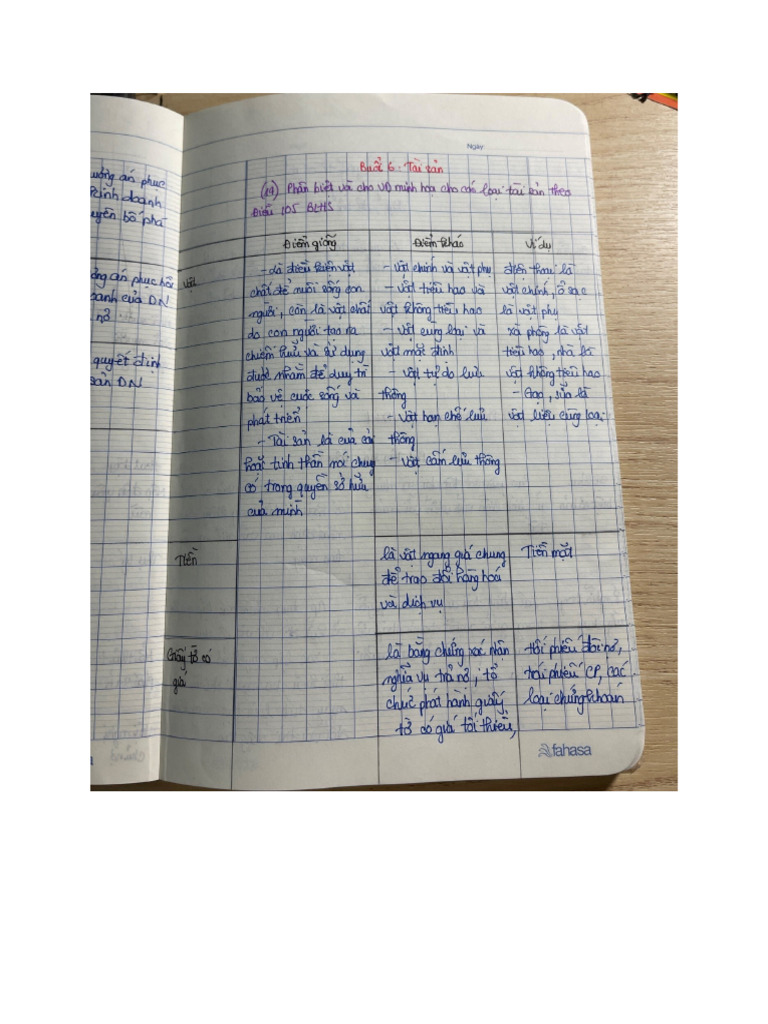 ướng án phục
kinh doanh
uyên bố phá
ông án phục hồi
oanh của DN
nở
quyết định
sản DN
Ngày
Buổi 6: Tài sản
(19) Phân biệt và cho VD minh họa cho các loại tài sản theo
Điều 105 BLHS
Điểm giống
Điểm khác
Ví dụ
Vật
- là điều kiện vật
chất để nuôi sống con
người, còn là vật chất
do con người tạo ra
chiếm hữu và sử dụng
được nhằm để duy trì
bảo vệ cuộc sống và
phát triển
- Tài sản là của cải
hoặc tinh thần nói chung
có trong quyền sở hữu
của mình
- Vật chính và vật phụ
- vật tiêu hao và
vật không tiêu hao
- vật cùng loại và
vật mất định
- vật tự do lưu
thông
- vật hạn chế lưu
thông
- vật cấm lưu thông
điện thoại là
vật chính, ổ sạc
là vật phụ
xà phòng là vật
tiêu hao, nhà là
vật không tiêu hao
- Gạo, sữa là
vật liệu cùng loại
Tiền
là vật ngang giá chung
để trao đổi hàng hoá
và dịch vụ
Tiền mặt
Giấy tờ có
giá
là bằng chứng xác nhận
nghĩa vụ trả nợ, tổ
chức phát hành giấy
tờ có giá tối thiểu,
hối phiếu đòi nợ,
trái phiếu CP, các
loại chứng khoán
fahasa